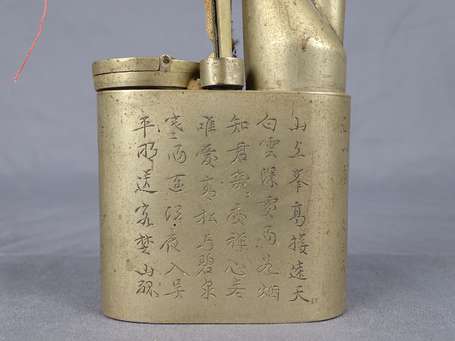 山上峯高接遠天
白雲深處烟
知君禪心
唯愛高松与碧泉
寒雨連江夜入吳
平明送客楚山孤